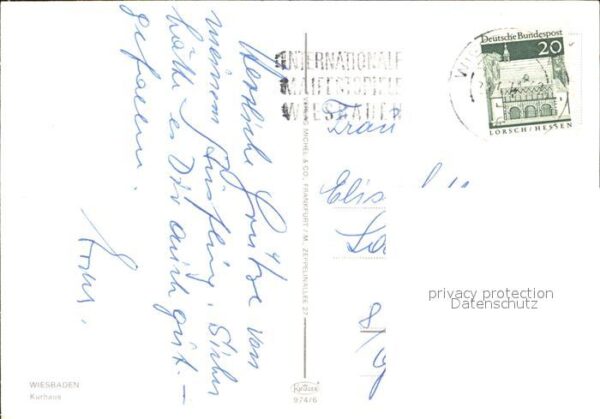 Herzliche Grüße von
meinem Ausflug. Sicher
hätte es Dir auch gut
gefallen.
INTERNATIONALE
MAIFESTSPIELE
WIESBADEN
Deutsche Bundespost
20
LORSCH/HESSEN
Frau
Elis
La
8
VERLAG MICHEL & CO., FRANKFURT/M. ZEPPELINALLEE 27
privacy protection
Datenschutz
WIESBADEN
Kurhaus
KRÜGER
974/6